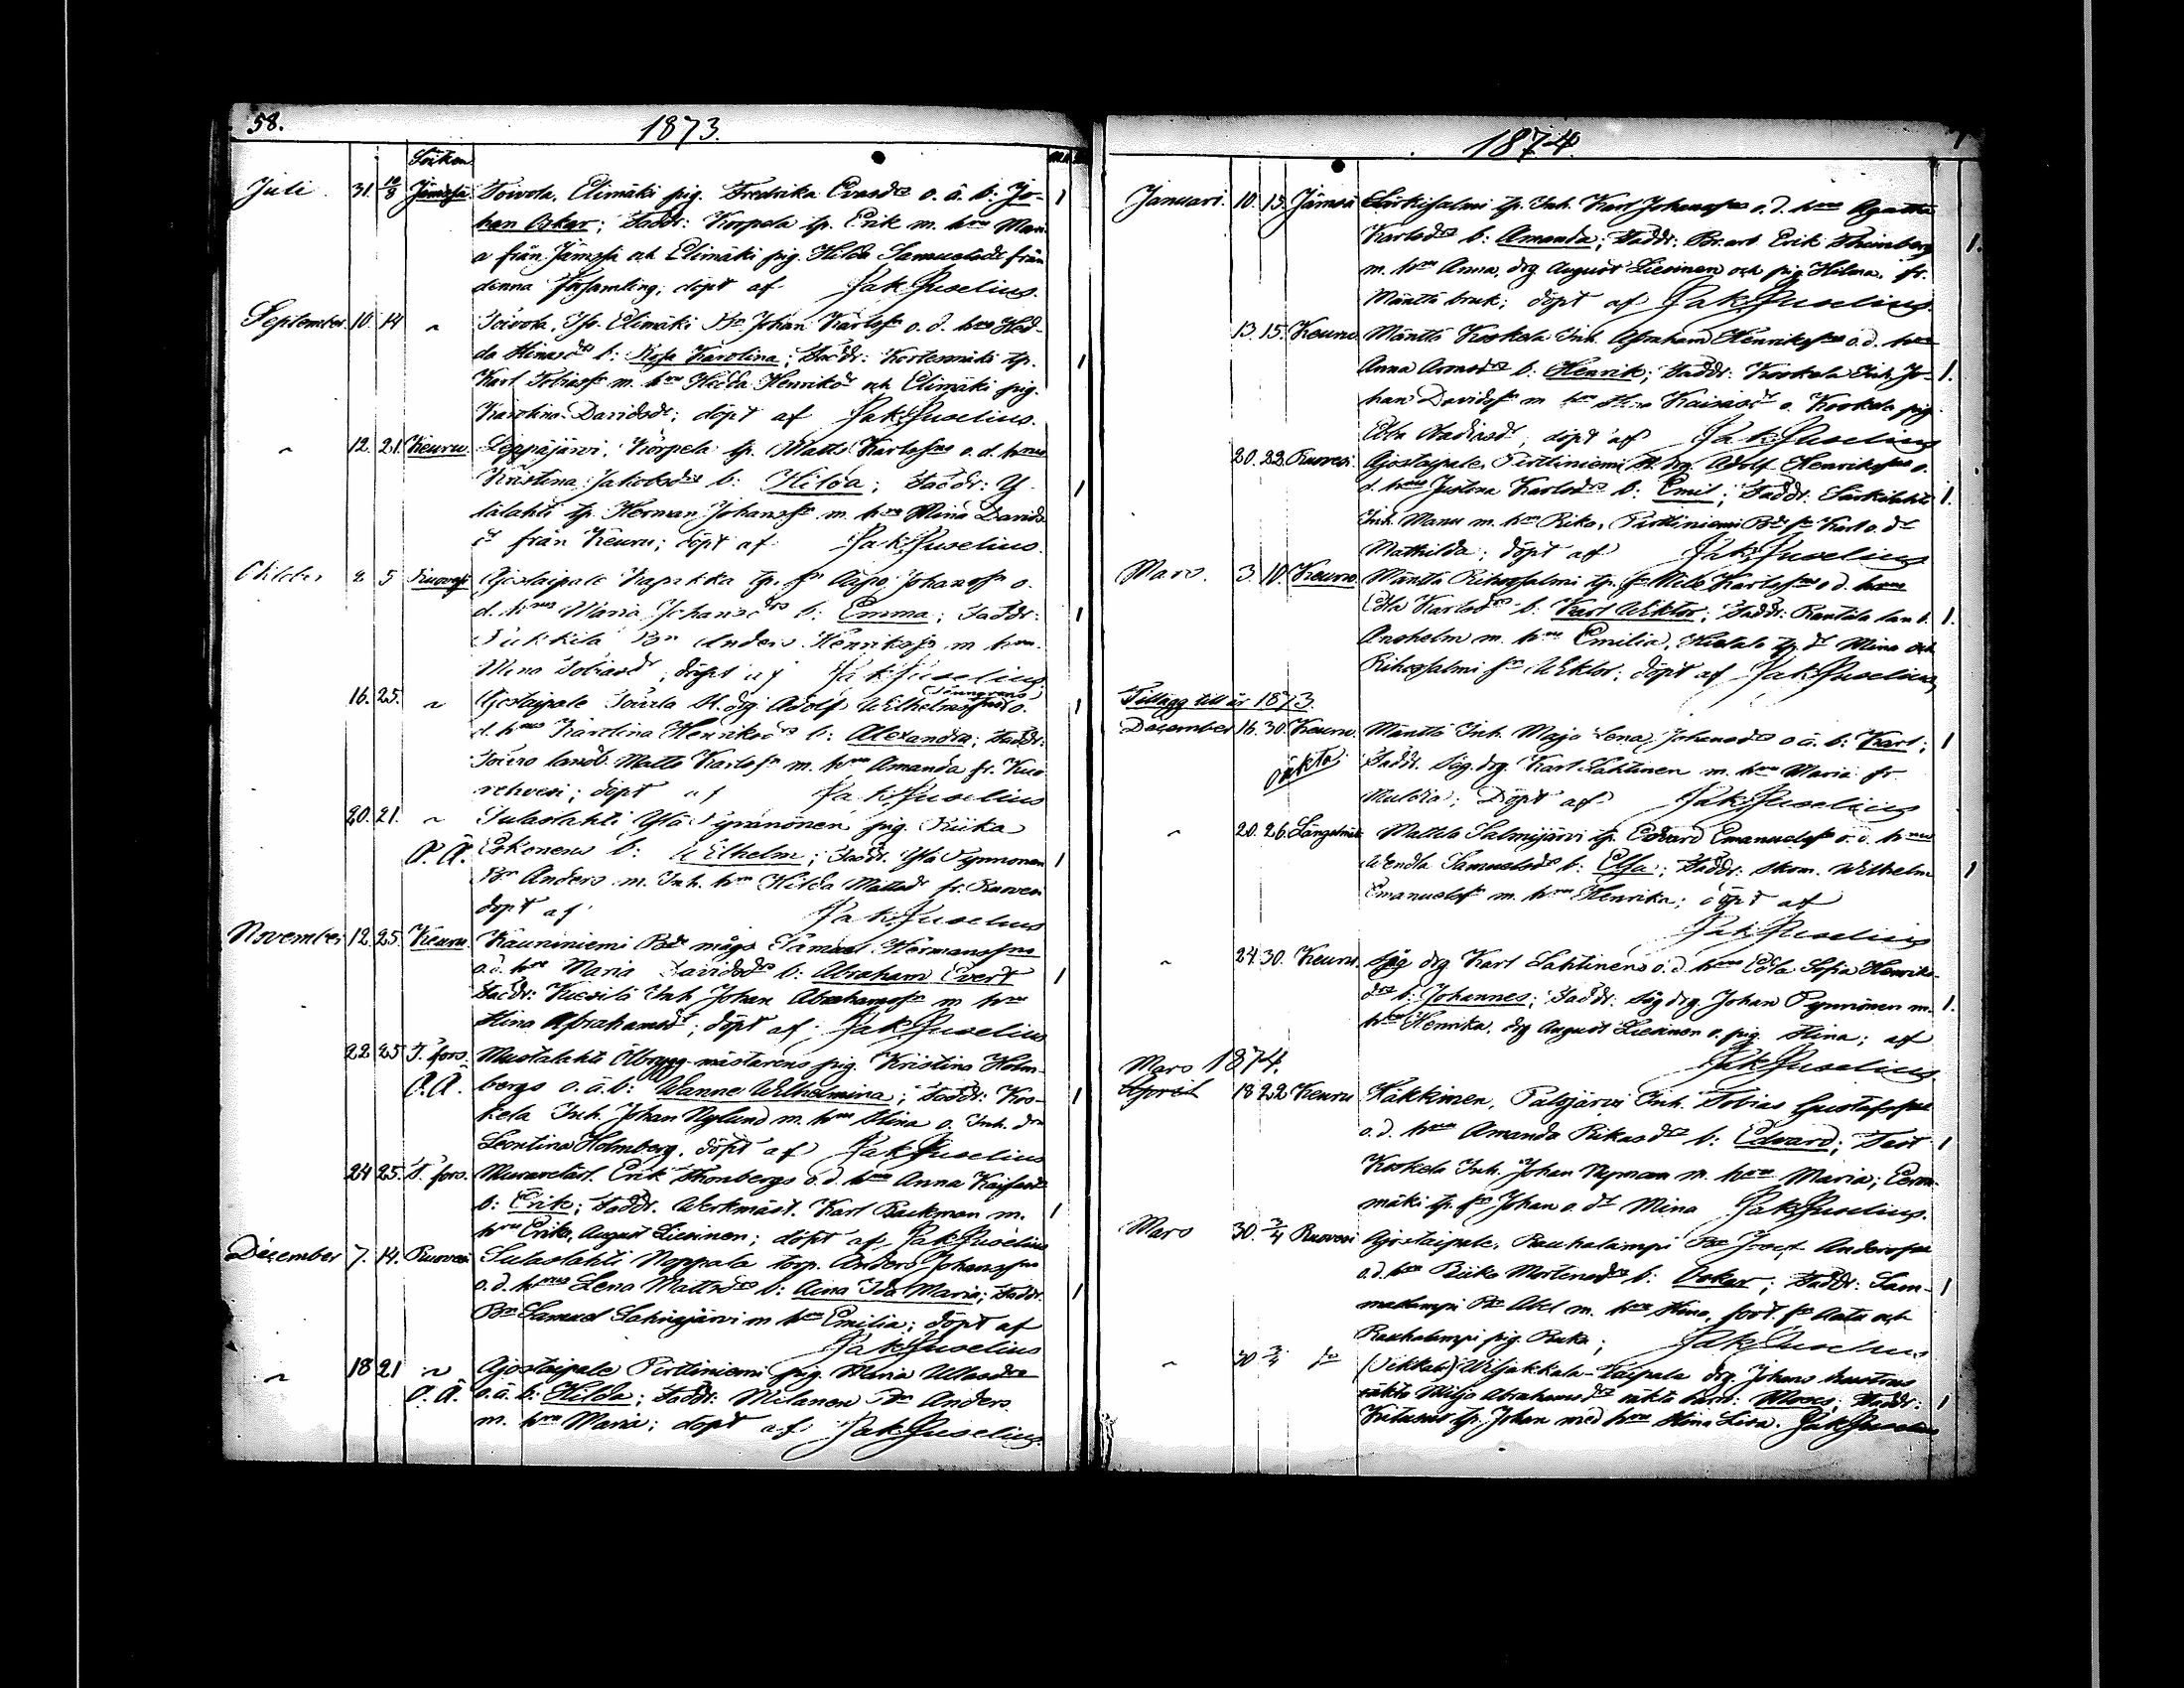 58.
1873.
Socken
Juli. 31. 10/8 Jämsä. Toivola, Elimäki pig. Fredrika Evasdrs o. ä. b: Jo- 1
han Oskar; Faddr: Korpela tp. Erik m. hru Mari
a från Jämsä och Elimäki pig. Hilda Samuelsdr från
denna församling; döpt af Jak. Juselius.
September 10 14 " Toivola, Elimäki Bn Johan Karlss o. d. hrus Hed-
da Stinasdrs b: Rosa Karolina; Faddr: Kortesmäki tp. 1
Karl Tobiass m. hru Hedda Henriksdr och Elimäki pig.
Karolina Davidsdr; döpt af Jak. Juselius.
" 12. 21. Keuru. Leppäjärvi, Korpela tp. Matts Karlssns o. d. hrus
Kristina Jakobsdrs b: Hilda; Faddr: Y- 1
lälahti tp. Herman Johanss m. hru Mina Davids
dr från Keuru; döpt af Jak. Juselius.
Oktober 2 5 Ruovesi Ajostaipale Kapakka tp. sn Aapo Johanssn o.
d. hrus Maria Johansdrs b: Emma; Faddr: 1
Bn Anders Henrikss m hru
Mina Tobiasdr; döpt af Jak. Juselius
16. 25. " Ajostaipale drg Adolf Wilhelmssns o. 1
d. hrus Karolina Henriksdrs b: Alexandra; Faddr:
landb. Matts Karlssn m. hru Amanda fr. Kuo
rehvesi; döpt af Jak. Juselius
20. 21. " Sulaslahti Ylä Pynnönen pig. Riika
O. Ä. Eskonens b: Wilhelm; Faddr. Ylä Pynnönen 1
Bn Anders m. Inh. hru Hilda Mattsdr fr. Ruovesi
döpt af Jak. Juselius
November 12. 25. Keuru. Kauniniemi Bds mågs Samuel Hermanssns
o. d. hru Maria Davidsdrs b: Abraham Evert 1
Faddr: Inh Johan Abrahamssn m hru
Stina Abrahamsdr; döpt af Jak. Juselius
22. 25 T. fors. Mustalahti Ölbrygg-mästarens pig. Kristina Holm-
O. Ä. bergs o. ä. b: Wanne Wilhelmina; Faddr: Kos- 1
kela Inh. Johan Nylund m. hru Stina o. Inh. dr
Leontina Holmberg, döpt af Jak. Juselius
24 25. T. fors. Erik Thonbergs o. d. hru Anna
b: Erik; Faddr. Werkmäst. Karl Backman m. 1
hru Erika, August Liesinen; döpt af Jak. Juselius
December 7. 14. Ruovesi Sulaslahti Noppala torp. Anders Johanssns
o. d. hrus Lena Mattsdrs b: Aina Ida Maria; Faddr. 1
Bn Samuel Salmijärvi m hru Emilia; döpt af
Jak. Juselius
" 18 21 " Ajostaipale Pirttiniemi pig. Maria
O. Ä. o. ä. b: Hilda; Faddr: Milanen Bn Anders
m. hru Maria; döpt af Jak. Juselius.
1874.
Januari. 10. 15. Jämsä Särkisalmi tp. Inh. Karl Johanssns o. d. hrus Agatha
Karlsdrs b: Amanda; Faddr: Br.arb Erik 1.
m. hru Anna, drg August Liesinen och pig. Hilma, fr.
Mänttä bruk; döpt af Jak. Juselius.
13. 15. Keuru Mänttä Koskela Inh. Abraham Henrikssns o. d. hrus
Anna b: Henrik; Faddr: Koskela Inh. Jo- 1.
han Davidss m hru Stina o. Koskela pig.
Edla; döpt af Jak. Juselius
20. 22. Ruovesi. Ajostaipale, Pirttiniemi drg Adolf Henrikssns o.
d. hrus Justina Karlsdrs b: Emil; Faddr: Särkilahti 1.
Inh. Manu m. hru Rika, Pirttiniemi Bds sn Karl o. dr
Mathilda; döpt af Jak. Juselius
Mars. 3. 10. Keuru. Mänttä Rihosalmi tp. sn Karlssns o. d. hrus
Edla Karlsdrs b: Karl Wiktor; Faddr: Rantala lan b. 1.
Anshelm m. hru Emilia, tp. dr Mina och
Rihosalmi sn Wiktor; döpt af Jak. Juselius
Tillägg till år 1873.
December 16. 30. Keuru. Mänttä Inh. Maja Lena Johansdrs o. ä. b: Karl; 1
oäkta. Faddr. Såg.drg. Karl Lahtinen m. hru Maria fr
Multia; Döpt af Jak. Juselius
" 20. 26. Längelmäki Mattila Salmijärvi tp. Edvard Emanuelss o. d. hrus
Wendla Samuelsdrs b: Elsa; Faddr: skom. Wilhelm 1
Emanuelss m. hru Henrika; döpt af
Jak. Juselius
" 24. 30. Keuru. Såg drg Karl Lahtinens o. d. hrus Edla Sofia Henriks-
drs b: Johannes; Faddr: Såg drg. Johan Pynnönen m. 1.
hru Henrika, drg August Liesinen o. pig. Stina; af
Jak. Juselius
Mars 1874.
April 18 22 Keuru Häkkinen, Palojärvi Inh. Tobias Gustafssns
o. d. hrus Amanda b: Edvard; Test 1
Koskela Inh. Johan Nyman m. hru Maria;
mäki tp. sn Johan o. dr Mina Jak. Juselius.
Mars 30. 3/4 Ruovesi Ajostaipale, Rauhalampi Bn Anderssns
o. d. hrus Riika Mårtensdrs b: Oskar; Faddr: Sam- 1
malampi Bn Abel m. hru Stina, och
Rauhalampi pig. Riika; Jak. Juselius
" 30 3/4 Wiljakkala- Taipale drg. Johans hustrus
Abrahamsdrs äkta barn: Moses; Faddr: 1
tp. Johan med hru Stina Lisa. Jak. Juselius